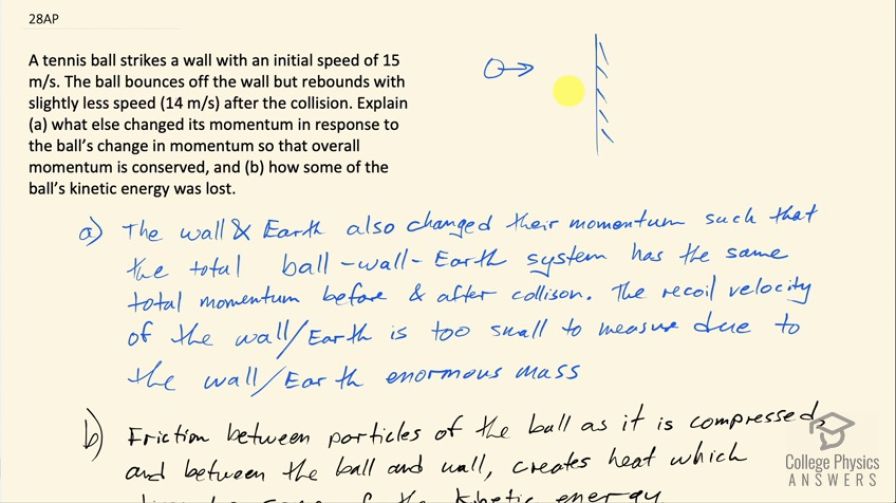 28AP
A tennis ball strikes a wall with an initial speed of 15
m/s. The ball bounces off the wall but rebounds with
slightly less speed (14 m/s) after the collision. Explain
(a) what else changed its momentum in response to
the ball's change in momentum so that overall
momentum is conserved, and (b) how some of the
ball's kinetic energy was lost.
a) The wall & Earth also changed their momentum such that
the total ball-wall-Earth system has the same
total momentum before & after collison. The recoil velocity
of the wall/Earth is too small to measure due to
the wall/Earth enormous mass
b) Friction between particles of the ball as it is compressed,
and between the ball and wall, creates heat which
the kinetic energy
College Physics
ANSWERS